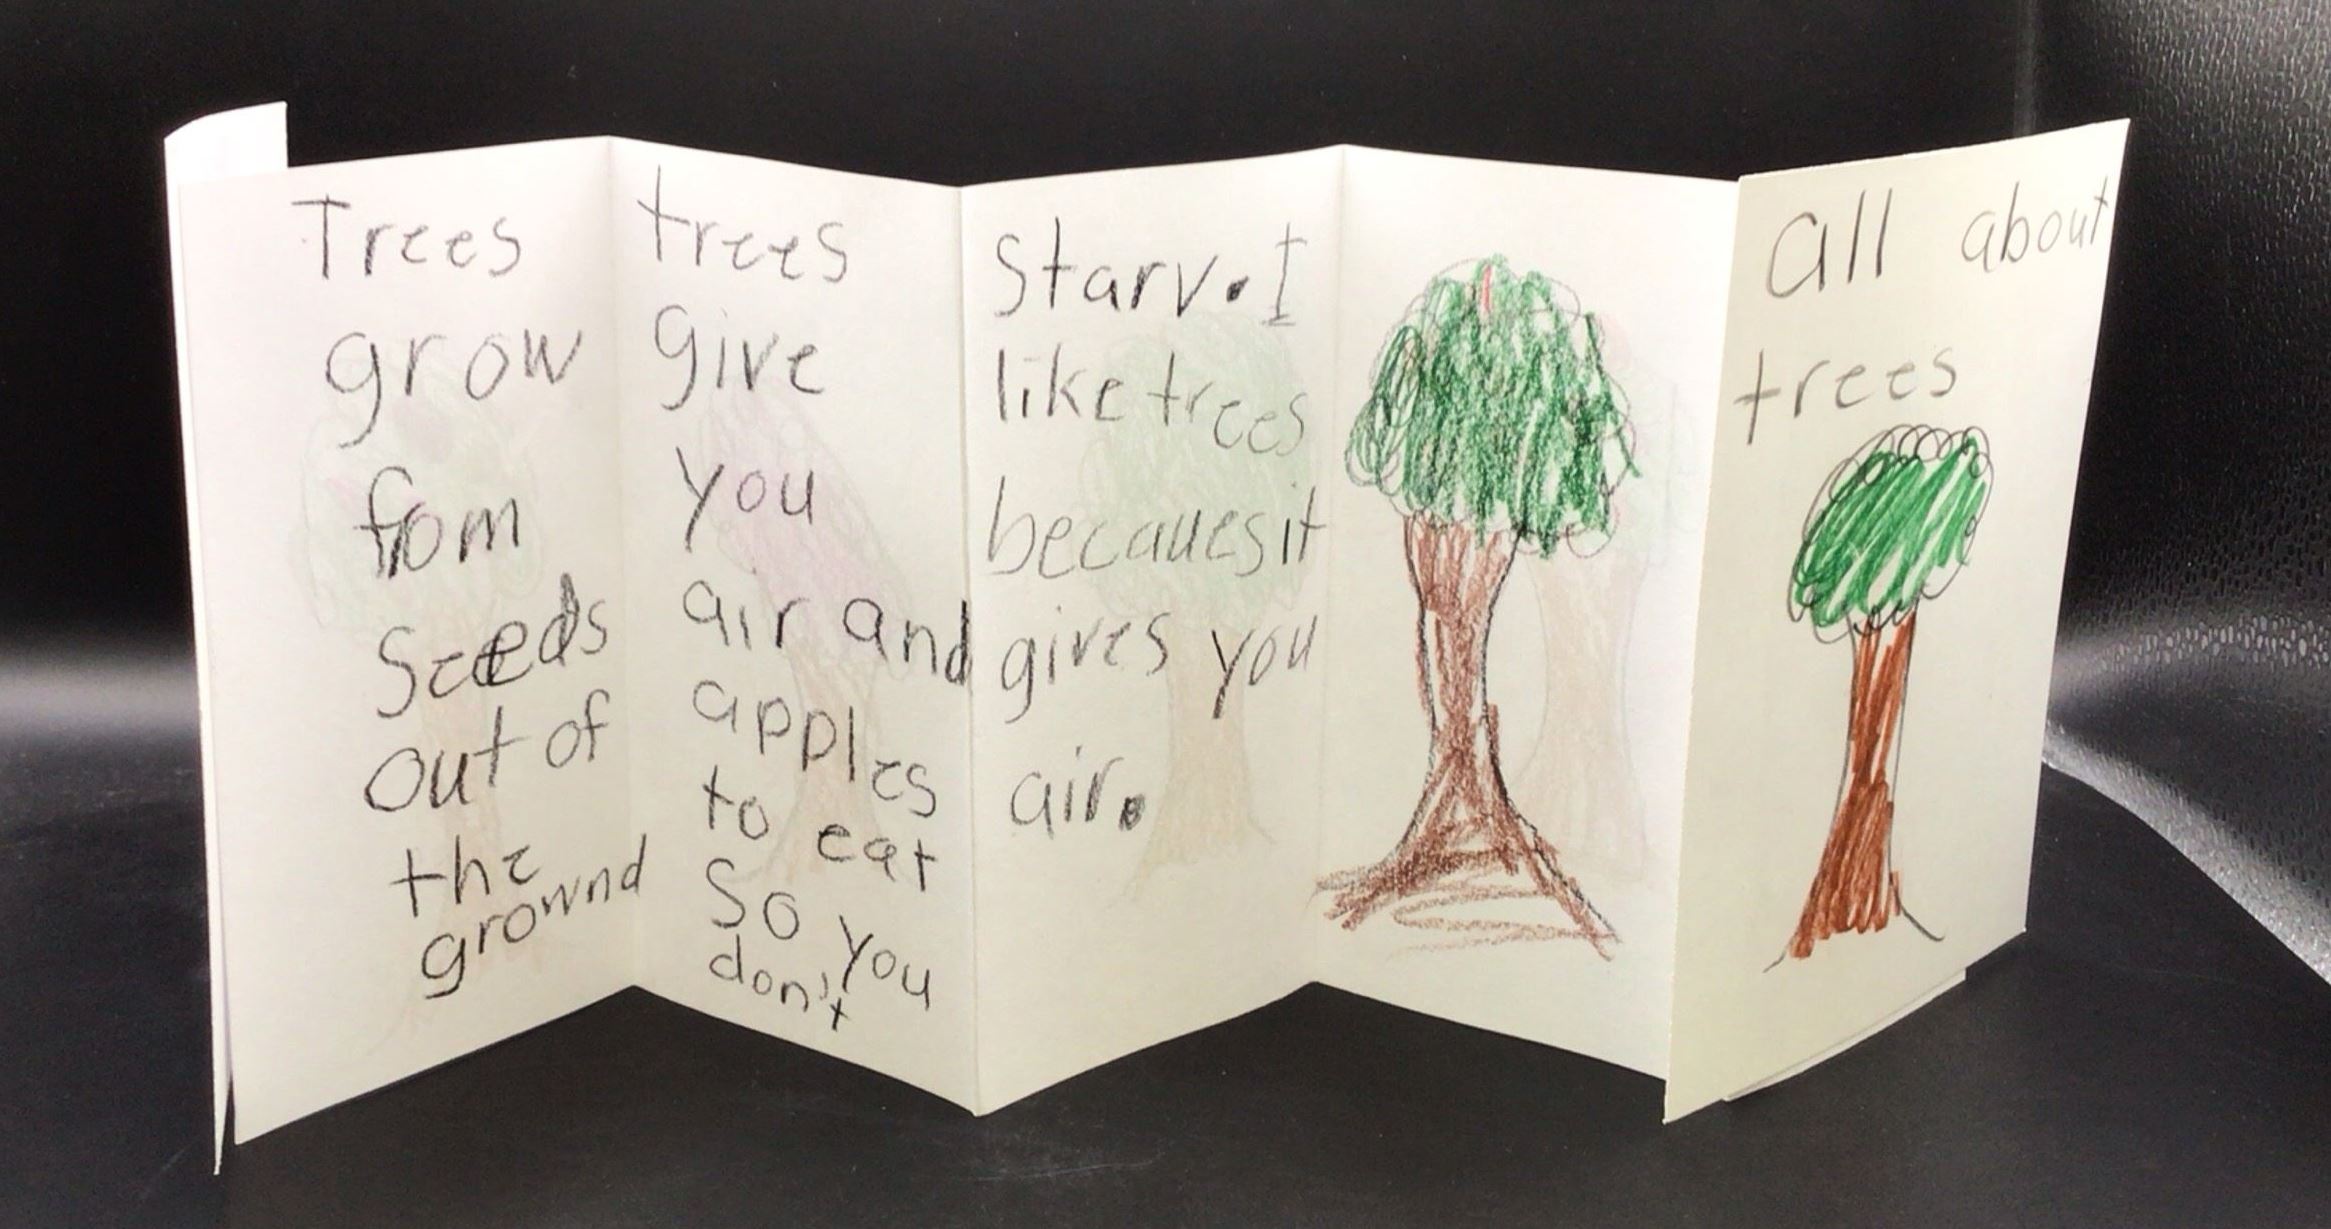 Trees
grow
from
Seeds
out of
the
grownd
trees
give
you
air and
apples
to eat
So you
don't
Starv. I
like trees
becaues it
gives you
air.
all about
trees